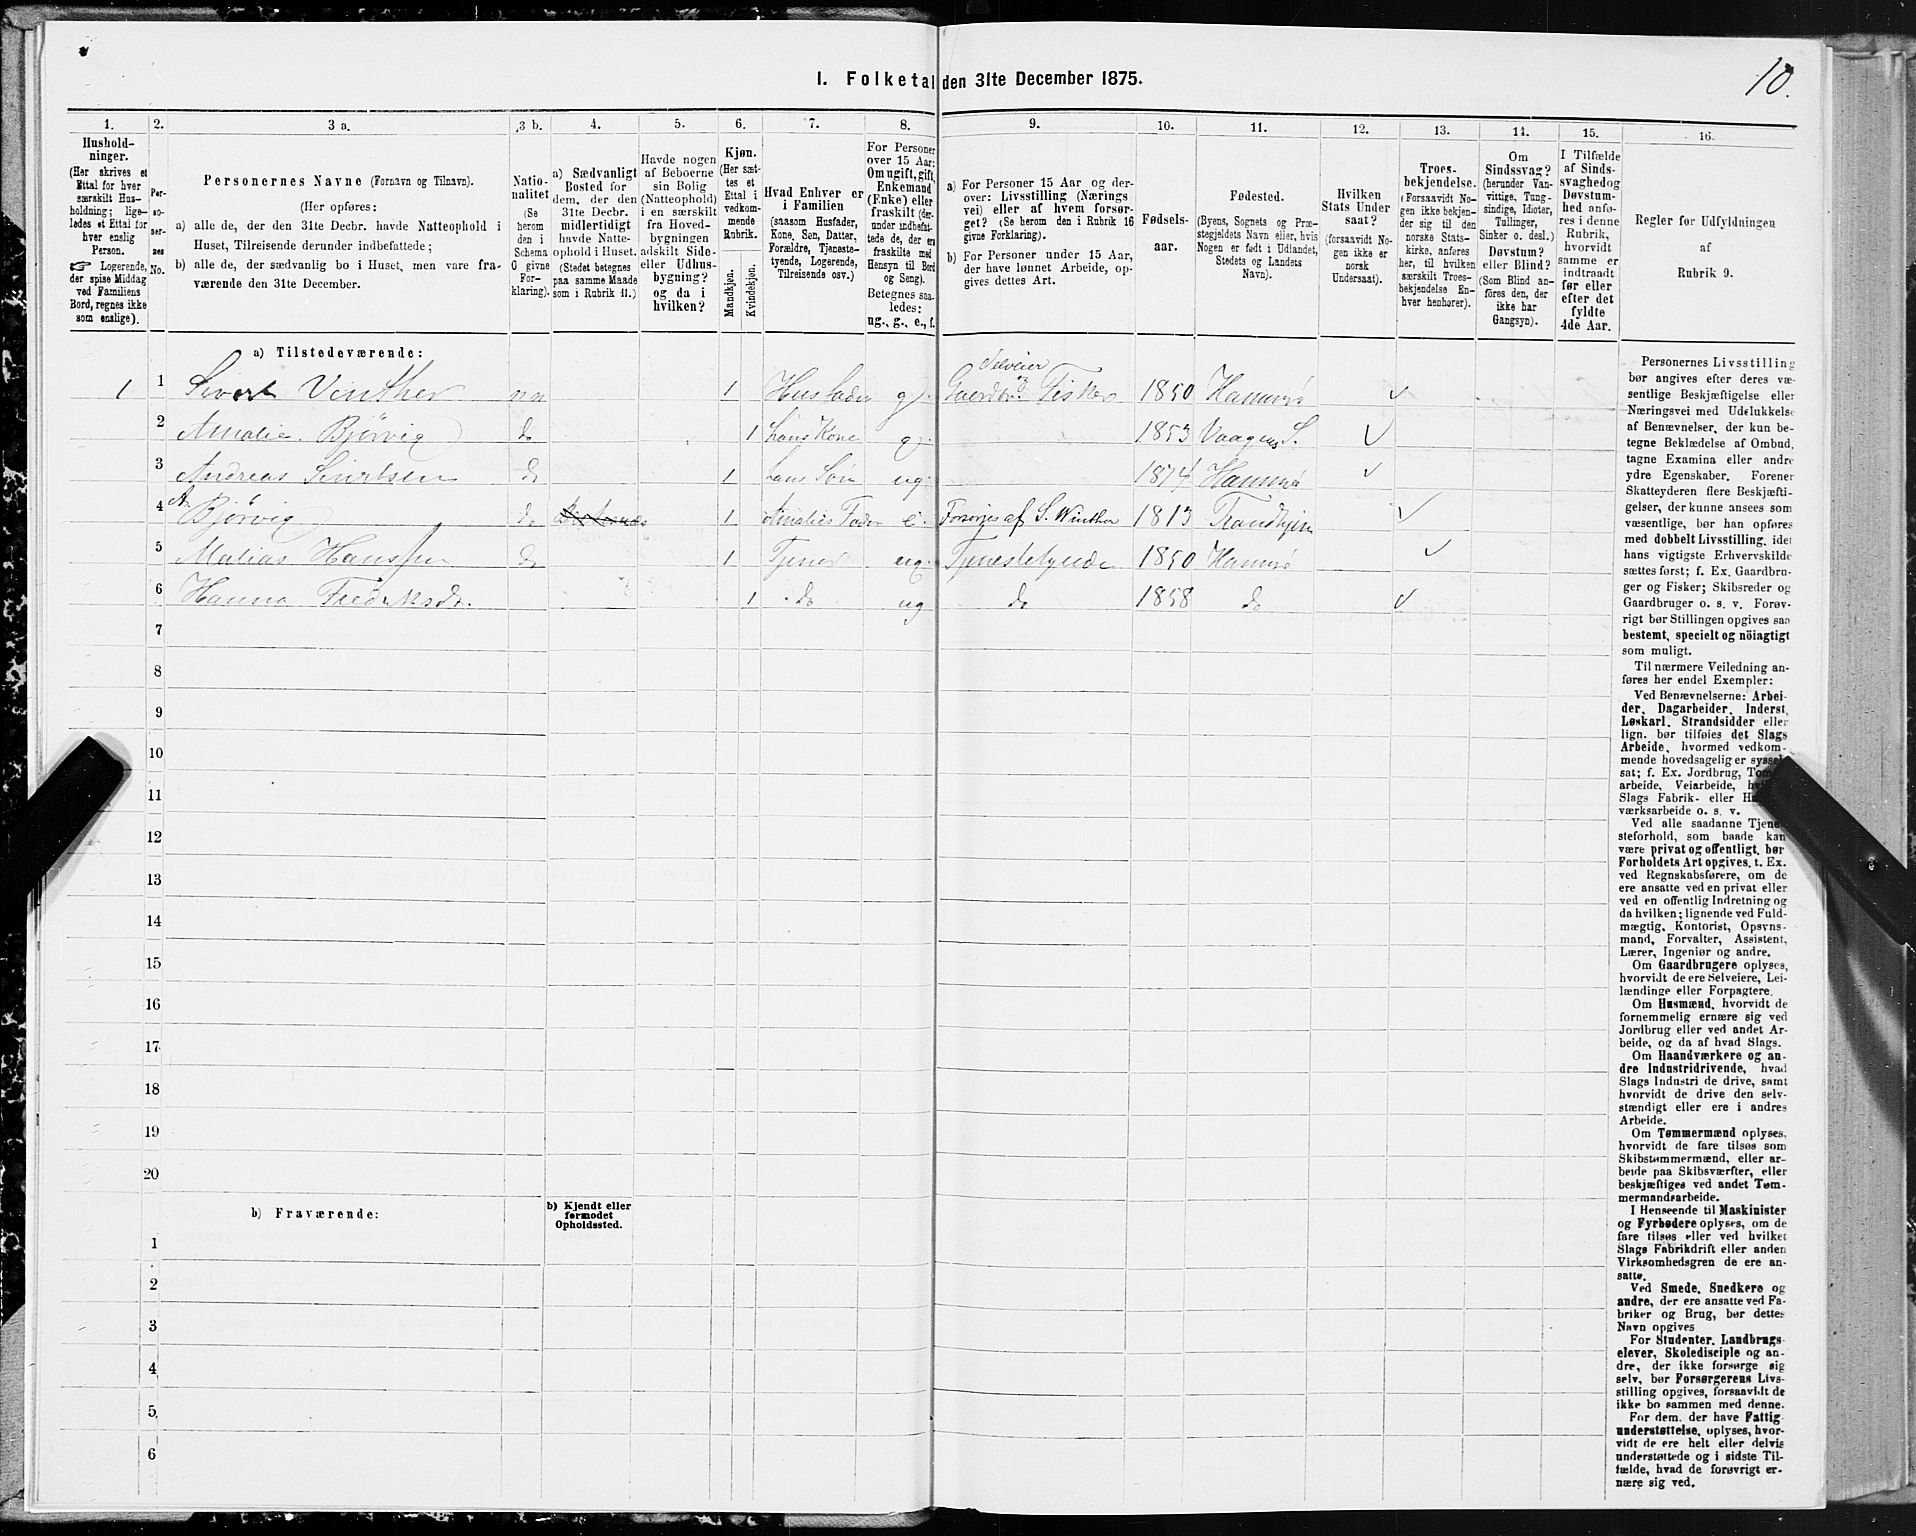 10.
I. Folketal den 31te December 1875.
1.
Hushold-
ninger.
(Her skrives et
Ettal for hver
særskilt Hus-
holdning; lige-
ledes et Ettal for
hver enslig
Person.
☞ Logerende,
der spise Middag
ved Familiens
Bord, regnes ikke
som enslige).
2.
Per-
so-
ner-
nes
No.
3 a.
Personernes Navne (Fornavn og Tilnavn).
(Her opføres:
a) alle de, der den 31te Decbr. havde Natteophold i
Huset, Tilreisende derunder indbefattede;
b) alle de, der sædvanlig bo i Huset, men vare fra-
værende den 31te December.
3 b.
Natio-
nalitet
(Se
herom
den i
Schema
G givne
For-
klaring).
4.
a) Sædvanligt
Bosted for
dem, der den
31te Decbr.
midlertidigt
havde Natte-
ophold i Huset.
(Stedet betegnes
paa samme Maade
som i Rubrik 11.)
5.
Havde nogen
af Beboerne
sin Bolig
(Natteophold)
i en særskilt
fra Hoved-
bygningen
adskilt Side-
eller Udhus-
bygning?
og da i
hvilken?
6.
Kjøn.
(Her sæt-
tes et
Ettal i
vedkom-
mende
Rubrik.
Mandkjøn.
Kvindekjøn.
7.
Hvad Enhver er
i Familien
(saasom Husfader,
Kone, Søn, Datter,
Forældre, Tjeneste-
tyende, Logerende,
Tilreisende osv.)
8.
For Personer
over 15 Aar:
Om ugift, gift,
Enkemand
(Enke) eller
fraskilt (der-
under indbefat-
tede de, der ere
fraskilte med
Hensyn til Bord
og Seng).
Betegnes saa-
ledes:
ug., g., e., f.
9.
a) For Personer 15 Aar og der-
over: Livsstilling (Nærings
vei) eller af hvem forsør-
get? (Se herom den i Rubrik 16
givne Forklaring).
b) For Personer under 15 Aar,
der have lønnet Arbeide, op-
gives dettes Art.
10.
Fødsels-
aar.
11.
Fødested.
(Byens, Sognets og Præ-
stegjeldets Navn eller, hvis
Nogen er født i Udlandet,
Stedets og Landets
Navn).
12.
Hvilken
Stats Under
saat?
(forsaavidt No-
gen ikke er
norsk
Undersaat).
13.
Troes-
bekjendelse.
(Forsaavidt No-
gen ikke bekjen-
der sig til den
norske Stats-
kirke, anføres
her, til hvilken
særskilt Troes-
bekjendelse En-
hver henhører).
14.
Om
Sindssvag?
(herunder Van-
vittige, Tung-
sindige, Idioter,
Tullinger,
Sinker o. desl.)
Døvstum?
eller Blind?
(Som Blind an-
føres den, der
ikke har
Gangsyn).
15.
I Tilfælde
af Sinds-
svaghed og
Døvstum-
hed anfø-
res i denne
Rubrik,
hvorvidt
samme er
indtraadt
før eller
efter det
fyldte
4de Aar.
16.
Regler før Udfyldningen
af
Rubrik 9.
a) Tilstedeværende:
1 1 Sivert Vinther nn 1 Husfader g. Selveier Gaardbr. og Fisker 1850 Hamarø
2 Amalie Bjørvig do 1 hans Kone g. 1853 Vaagens S.
3 Andreas Sivertsen do 1 hans Søn ug. 1874 Hamarø
4 A. Bjørvig do 1 Amalies Fader e. Forsørges af S. Winther 1813 Trondhjem
5 Matias Hanssen do 1 Tjener ug. Tjenestetyende 1850 Hamarø
6 Hanna Fredriksdr. 1 do ug do 1858 do
7
8
9
10
11
12
13
14
15
16
17
18
19
20
b) Fraværende:
b) Kjendt eller
formodet
Opholdssted.
1
2
3
4
5
6
Personernes Livsstilling
bør angives efter deres væ-
sentlige Beskjæftigelse eller
Næringsvei med Udelukkelse
af Benævnelser, der kun be-
tegne Beklædelse af Ombud,
tagne Examina eller andre
ydre Egenskaber. Forener
Skatteyderen flere Beskjæfti-
gelser, der kunne ansees som
væsentlige, bør han opføres
med dobbelt Livsstilling, idet
hans vigtigste Erhvervskilde
sættes først; f. Ex. Gaardbru-
ger og Fisker; Skibsreder og
Gaardbruger o. s. v. Forøv-
rigt bør Stillingen opgives saa
bestemt, specielt og nöiagtigt
som muligt.
Til nærmere Veiledning an-
føres her endel Exempler:
Ved Benævnelserne: Arbei-
der, Dagarbeider, Inderst,
Løskarl, Strandsidder eller
lign. bør tilføies det Slags
Arbeide, hvormed vedkom-
mende hovedsagelig er syssel-
sat; f. Ex. Jordbrug, Tom
arbeide, Veiarbeide,
Slags Fabrik- eller
værksarbeide o. s. v.
Ved alle saadanne Tjene-
steforhold, som baade kan
være privat og offentligt, bør
Forholdets Art opgives, t. Ex.
ved Regnskabsførere, om de
ere ansatte ved en privat eller
ved en offentlig Indretning og
da hvilken; lignende ved Fuld-
mægtig, Kontorist, Opsyns-
mand, Forvalter, Assistent,
Lærer, Ingeniør og andre.
Om Gaardbrugere oplyses,
hvorvidt de ere Selveiere, Lei-
lændinge eller Forpagtere.
Om Husmænd, hvorvidt de
fornemmelig ernære sig ved
Jordbrug eller ved andet Ar-
beide, og da af hvad Slags.
Om Haandværkere og an-
dre Industridrivende, hvad
Slags Industri de drive, samt
hvorvidt de drive den selv-
stændigt eller ere i andres
Arbeide.
Om Tømmermænd oplyses,
hvorvidt de fare tilsøs som
Skibstømmermænd, eller ar-
beide paa Skibsværfter, eller
beskjæftiges ved andet Tøm-
mermandsarbeide.
I Henseende til Maskinister
og Fyrbødere oplyses, om de
fare tilsøs eller ved hvilket
Slags Fabrikdrift eller anden
Virksomhedsgren de ere an-
satte.
Ved Smede, Snedkere og
andre, der ere ansatte ved Fa-
briker og Brug, bør dettes
Navn opgives
For Studenter, Landbrugs-
elever, Skoledisciple og an-
dre, der ikke forsørge sig
selv, bør Forsørgerens Livs-
stilling opgives, forsaavidt de
ikke bo sammen med denne.
For dem, der have Fattig-
understøttelse, oplyses, hvor-
vidt de ere helt eller delvis
understøttede og i sidste Til-
fælde, hvad de forøvrigt er-
nære sig ved.